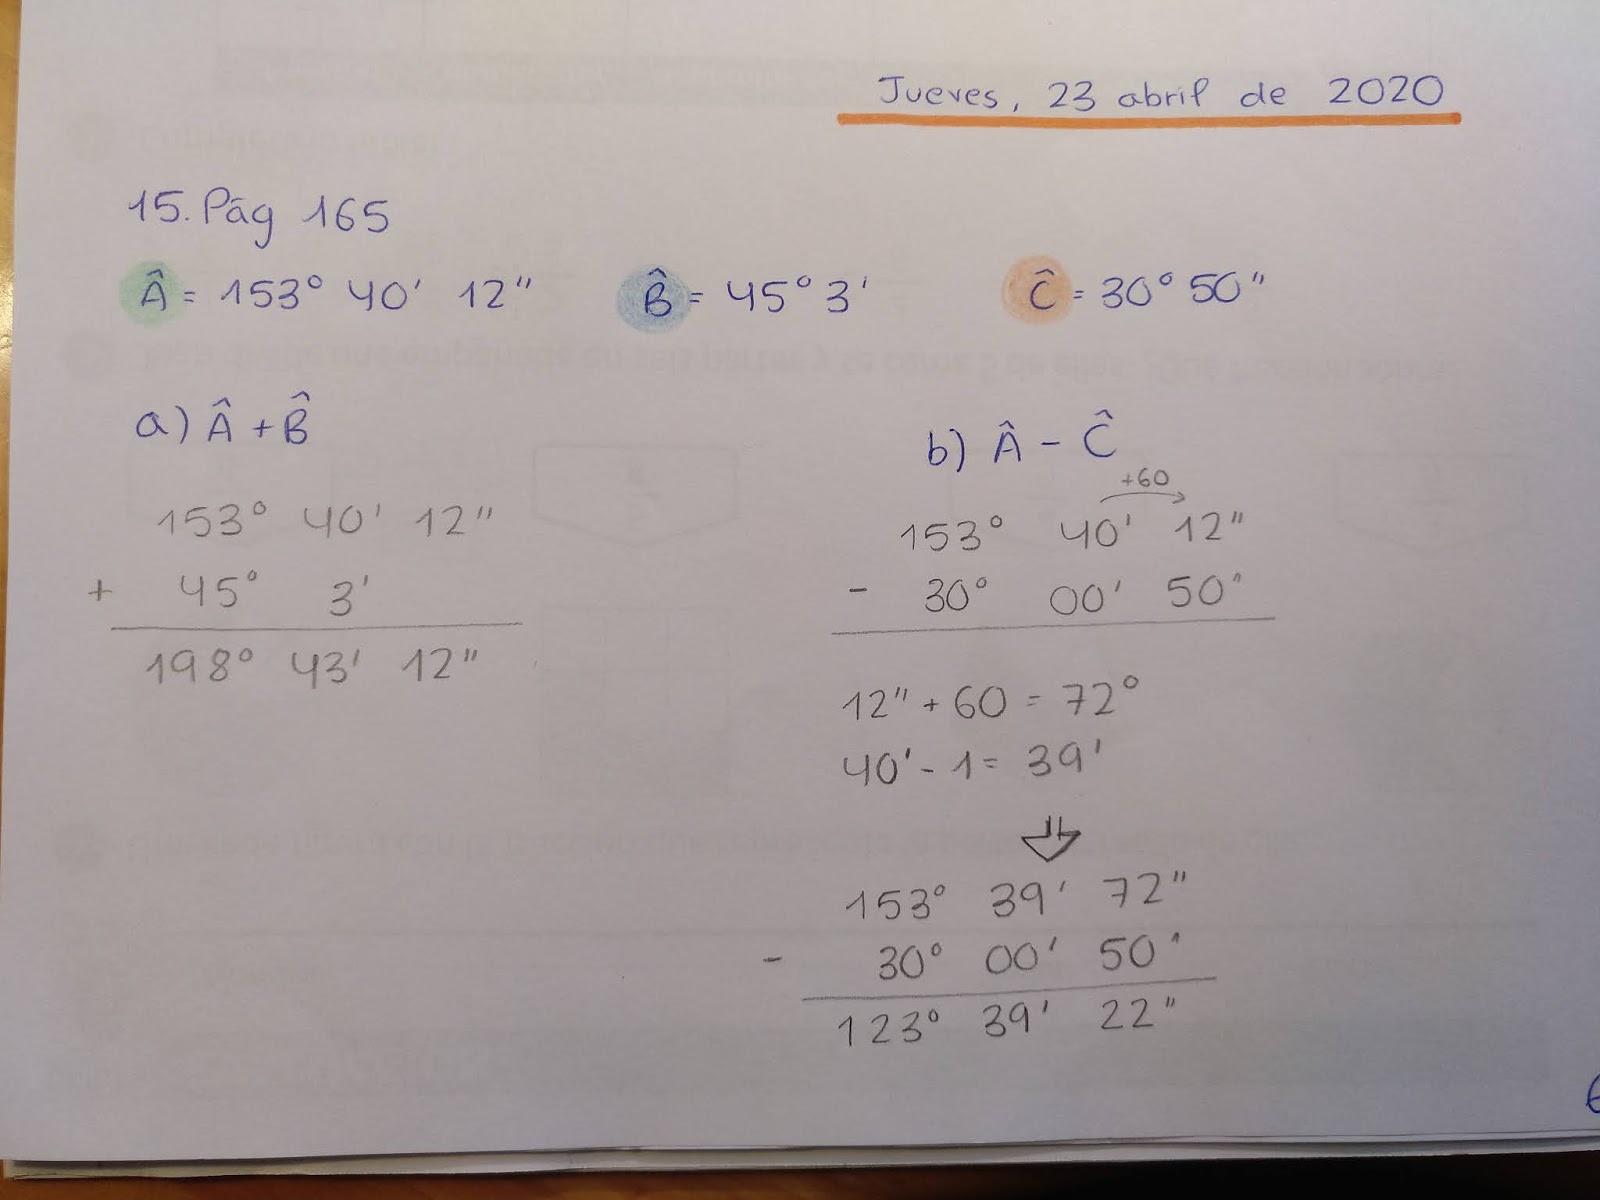 Jueves, 23 abril de 2020
15. Pág 165
Â = 153° 40' 12"
B̂ = 45° 3'
Ĉ = 30° 50"
a) Â + B̂
153° 40' 12"
+ 45° 3'
198° 43' 12"
b) Â - Ĉ
+60
153° 40' 12"
- 30° 00' 50"
12" + 60 = 72°
40' - 1 = 39'
153° 39' 72"
- 30° 00' 50"
123° 39' 22"